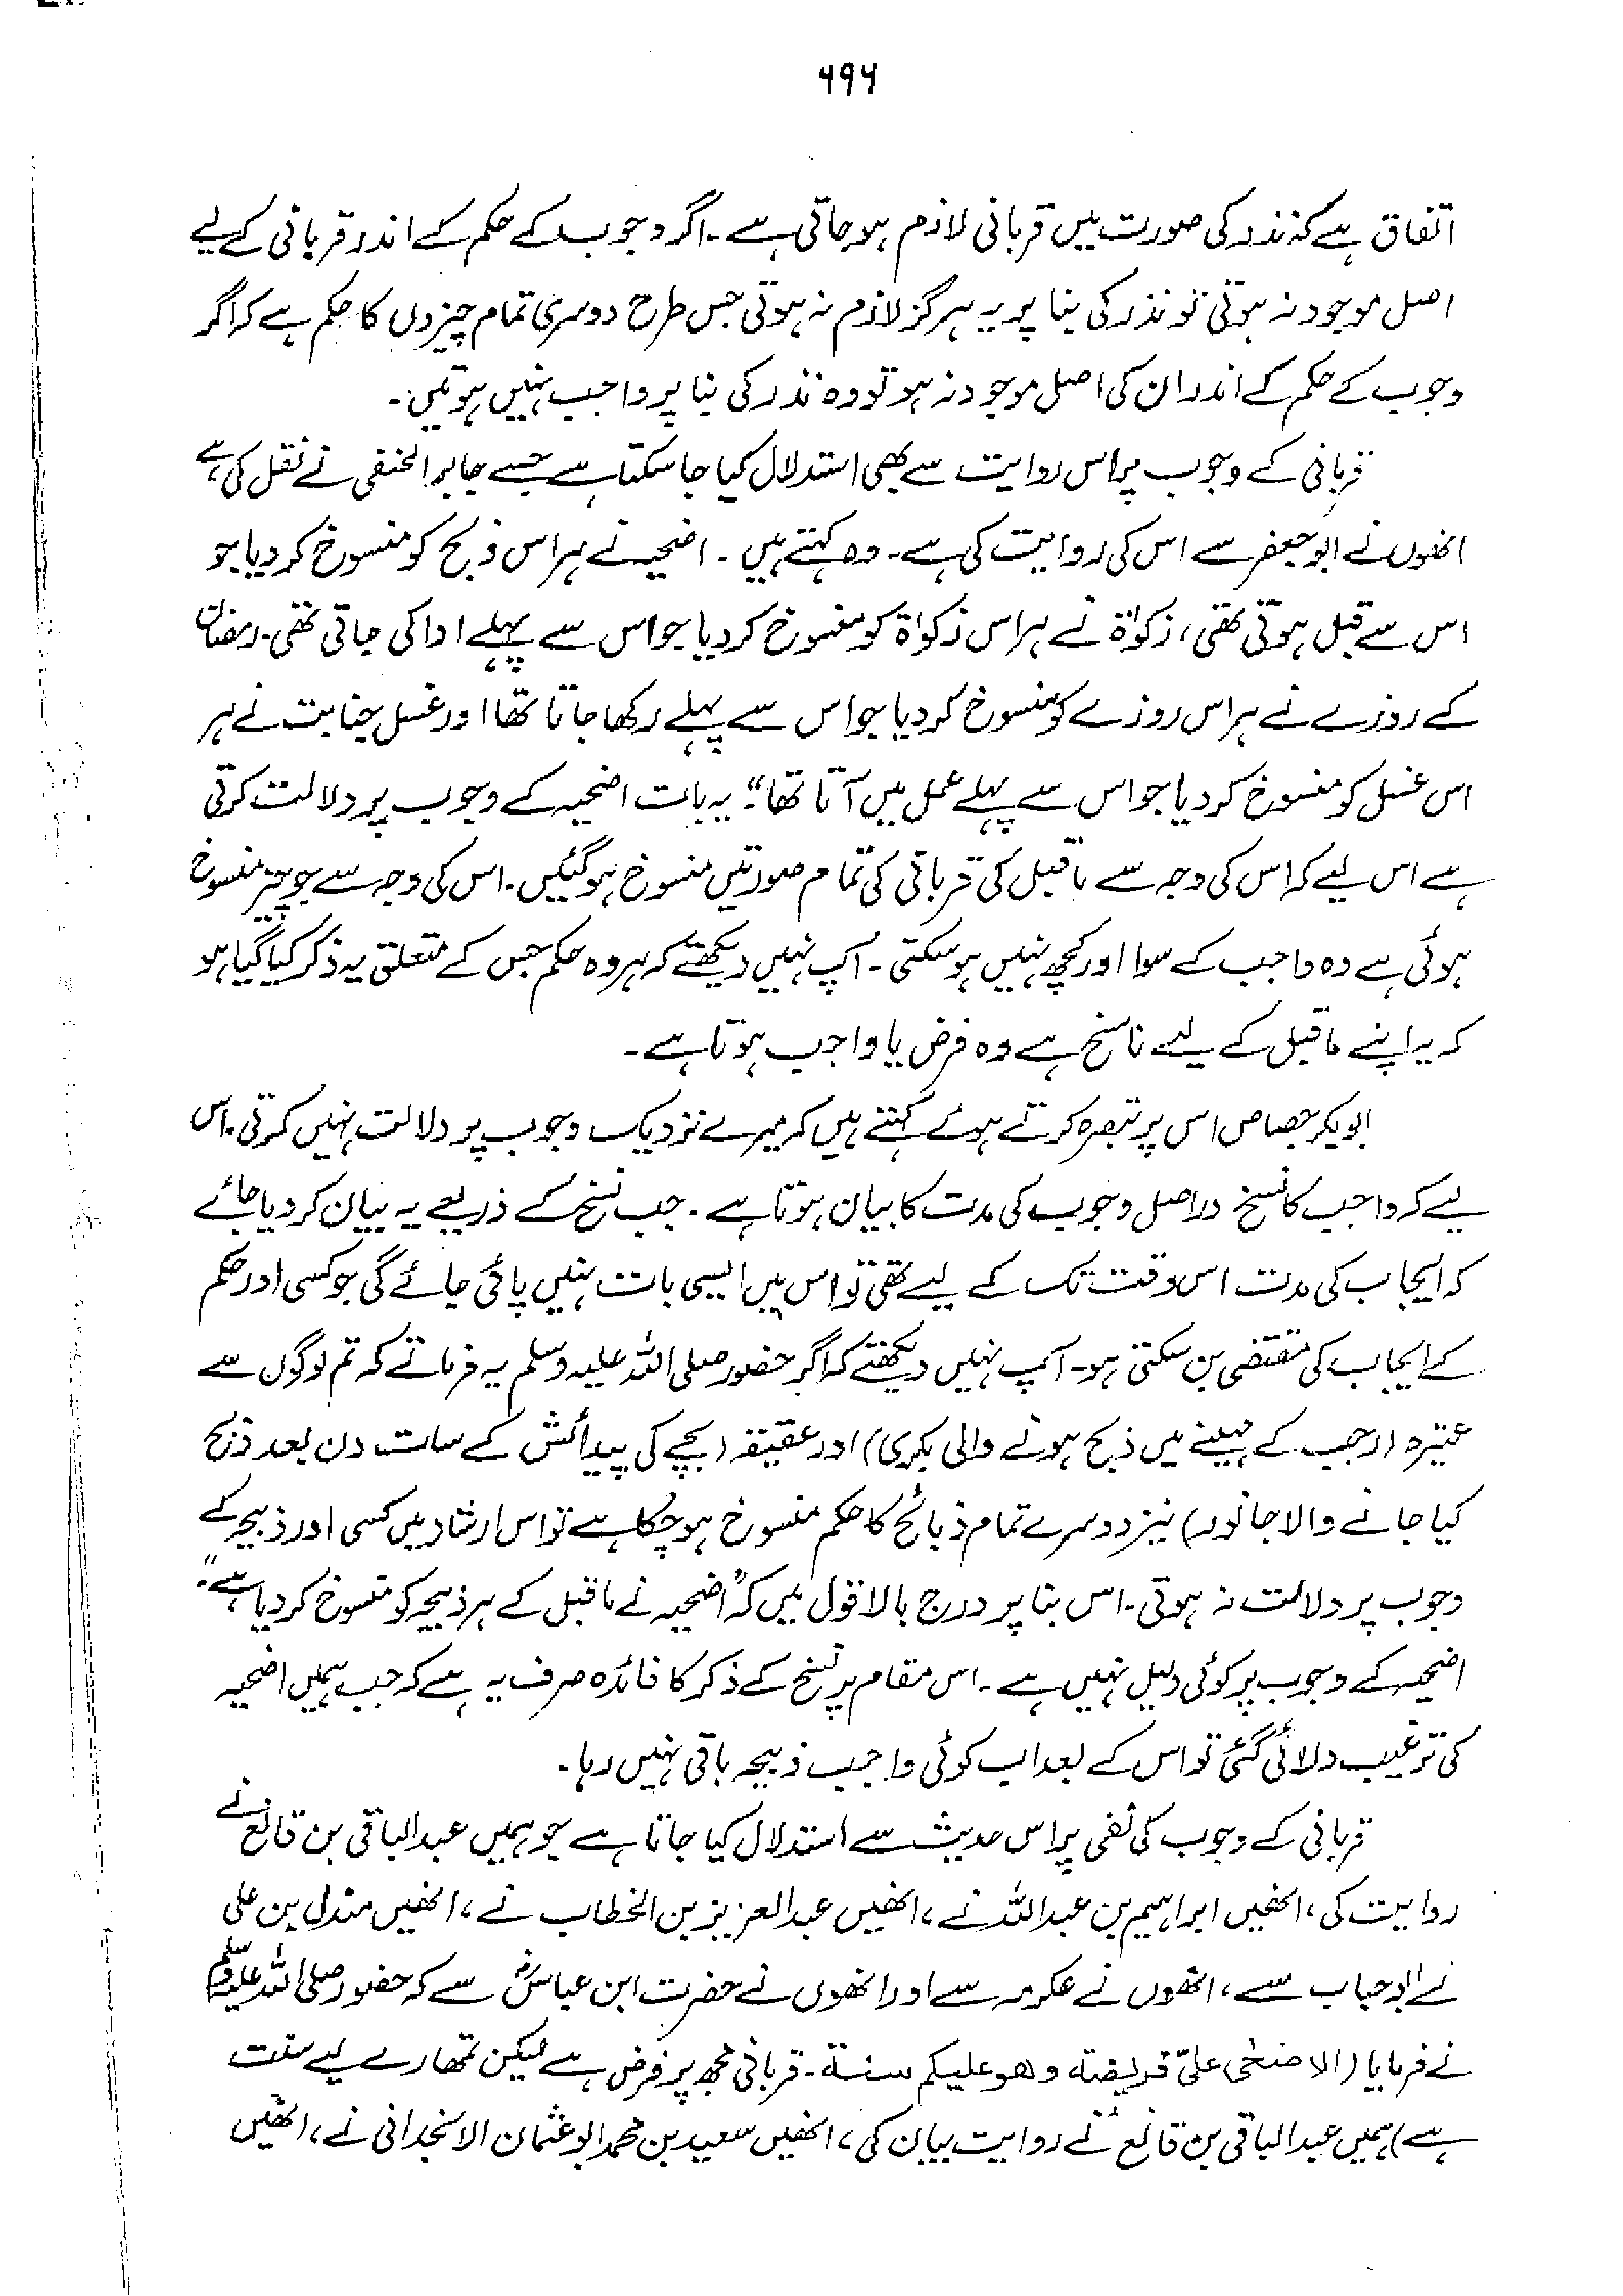 ۶۹۶
اتفاق ہے کہ نذر کی صورت میں قربانی لازم ہو جاتی ہے۔ اگر وجوب کے حکم کے اندر قربانی کے لیے
اصل موجود نہ ہوتی تو نذر کی بنا پر یہ ہرگز لازم نہ ہوتی جس طرح دوسری تمام چیزوں کا حکم ہے کہ اگر
وجوب کے حکم کے اندر ان کی اصل موجود نہ ہو تو وہ نذر کی بنا پر واجب نہیں ہوتیں۔
قربانی کے وجوب پر اس روایت سے بھی استدلال کیا جا سکتا ہے جسے جابر الحنفی نے نقل کی ہے
انھوں نے ابو جعفر سے اس کی روایت کی ہے۔ وہ کہتے ہیں۔ اضحیہ نے ہر اس ذبح کو منسوخ کر دیا جو
اس سے قبل ہوتی تھی، زکوٰۃ نے ہر اس زکوٰۃ کو منسوخ کر دیا جو اس سے پہلے ادا کی جاتی تھی۔ رمضان
کے روزے نے ہر اس روزے کو منسوخ کر دیا جو اس سے پہلے رکھا جاتا تھا اور غسل جنابت نے ہر
اس غسل کو منسوخ کر دیا جو اس سے پہلے عمل میں آتا تھا"۔ یہ بات اضحیہ کے وجوب پر دلالت کرتی
ہے اس لیے کہ اس کی وجہ سے ماقبل کی قربانی کی تمام صورتیں منسوخ ہو گئیں۔ اس کی وجہ سے جو چیز منسوخ
ہوئی ہے وہ واجب کے سوا اور کچھ نہیں ہو سکتی۔ آپ نہیں دیکھتے کہ ہر وہ حکم جس کے متعلق یہ ذکر کیا گیا ہو
کہ یہ اپنے ماقبل کے لیے ناسخ ہے وہ فرض یا واجب ہوتا ہے۔
ابوبکر جصاص اس پر تبصرہ کرتے ہوئے کہتے ہیں کہ میرے نزدیک وجوب پر دلالت نہیں کرتی۔ اس
لیے کہ واجب کا نسخ دراصل وجوب کی مدت کا بیان ہوتا ہے۔ جب نسخ کے ذریعے یہ بیان کر دیا جائے
کہ ایجاب کی مدت اس وقت تک کے لیے تھی تو اس میں ایسی بات نہیں پائی جائے گی جو کسی اور حکم
کے ایجاب کی مقتضی بن سکتی ہو۔ آپ نہیں دیکھتے کہ اگر حضور صلی اللہ علیہ وسلم یہ فرماتے کہ تم لوگوں سے
عتیرہ (رجب کے مہینے میں ذبح ہونے والی بکری) اور عقیقہ (بچے کی پیدائش کے سات دن بعد ذبح
کیا جانے والا جانور) نیز دوسرے تمام ذبائح کا حکم منسوخ ہو چکا ہے تو اس ارشاد میں کسی اور ذبیحہ کے
وجوب پر دلالت نہ ہوتی۔ اس بنا پر درج بالا قول میں کہ "اضحیہ نے ماقبل کے ہر ذبیحہ کو منسوخ کر دیا ہے"۔
اضحیہ کے وجوب پر کوئی دلیل نہیں ہے۔ اس مقام پر نسخ کے ذکر کا فائدہ صرف یہ ہے کہ جب ہمیں اضحیہ
کی ترغیب دلائی گئی تو اس کے بعد اب کوئی واجب ذبیحہ باقی نہیں رہا۔
قربانی کے وجوب کی نفی پر اس حدیث سے استدلال کیا جاتا ہے جو ہمیں عبدالباقی بن قانع نے
روایت کی، انھیں ابراہیم بن عبداللہ نے، انھیں عبدالعزیز بن الخطاب نے، انھیں مندل بن علی
نے ابو حباب سے، انھوں نے عکرمہ سے اور انھوں نے حضرت ابن عباسؓ سے کہ حضور صلی اللہ علیہ وسلم
نے فرمایا (الاضحٰی علیّ فریضۃ وھو علیکم سنۃ۔ قربانی مجھ پر فرض ہے لیکن تمھارے لیے سنت
ہے) ہمیں عبدالباقی بن قانع نے روایت بیان کی، انھیں سعید بن محمد ابو عثمان الانجدانی نے، انھیں